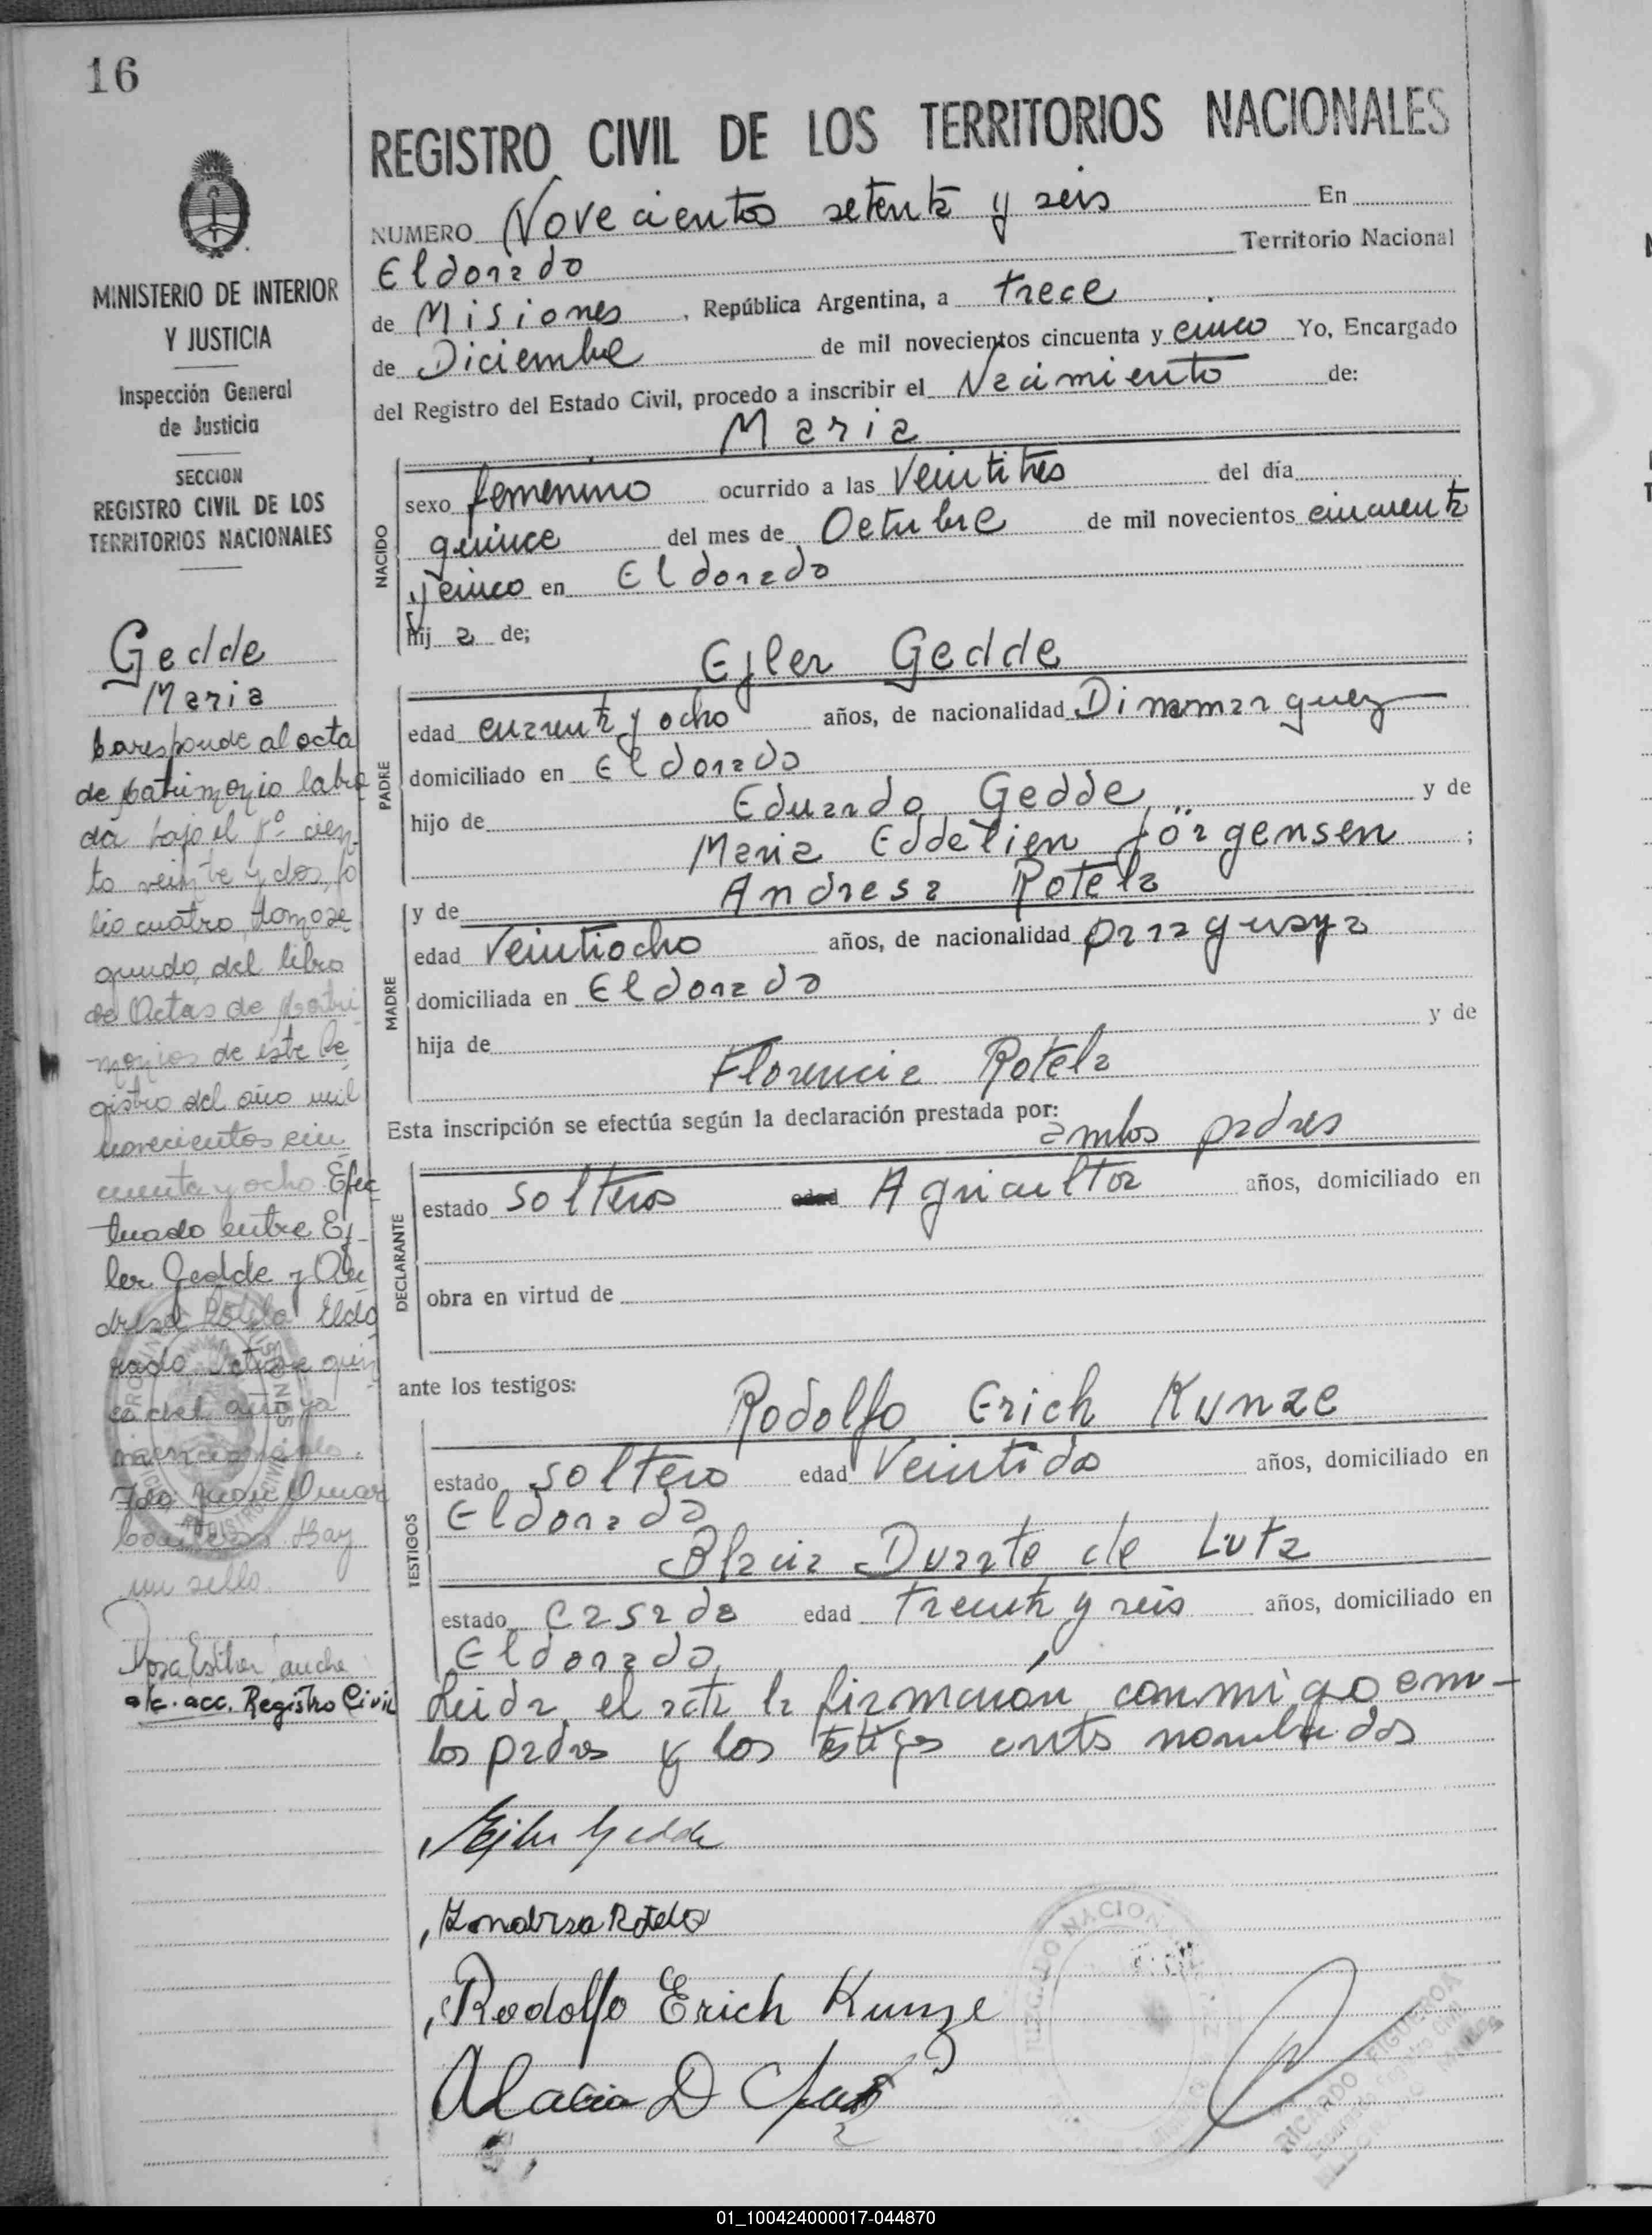 16
REGISTRO CIVIL DE LOS TERRITORIOS NACIONALES
MINISTERIO DE INTERIOR
Y JUSTICIA
Inspección General
de Justicia
SECCION
REGISTRO CIVIL DE LOS
TERRITORIOS NACIONALES
Gedde
Maria
Coresponde al acta
de matrimonio labra
da bajo el Nº cien
to veinte y dos, fo
lio cuatro, tomo se
gundo, del libro
de Actas de Matri
monios de este Re
gistro del año mil
novecientos cin
cuenta y ocho Efec
tuado entre Ej-
ler Gedde y An
dresa Rotela Eldo
rado, Octubre quin
ce del año ya
mencionado.
Fdo Juan Omar
Hay
un sello
Rosa Esther
a/c. acc. Registro Civil
NUMERO Novecientos setenta y seis En
Eldorado Territorio Nacional
de Misiones, República Argentina, a trece
de Diciembre de mil novecientos cincuenta y cinco Yo, Encargado
del Registro del Estado Civil, procedo a inscribir el Nacimiento de:
Maria
NACIDO
sexo femenino ocurrido a las veintitres del día
quince del mes de Octubre de mil novecientos cincuenta
y cinco en Eldorado
hij a de;
Ejler Gedde
PADRE
edad cuarenta y ocho años, de nacionalidad Dinamarquez
domiciliado en Eldorado
hijo de Eduardo Gedde y de
Maria Eddelien Jörgensen ;
y de Andresa Rotela
MADRE
edad veintiocho años, de nacionalidad paraguaya
domiciliada en Eldorado
hija de y de
Florencia Rotela
Esta inscripción se efectúa según la declaración prestada por:
ambos padres
DECLARANTE
estado solteros edad Agricultor años, domiciliado en
obra en virtud de
ante los testigos:
Rodolfo Erich Kunze
TESTIGOS
estado soltero edad veintidos años, domiciliado en
Eldorado
Alacia Duarte de Lutz
estado casada edad treinta y seis años, domiciliado en
Eldorado
Leida el acta la firmaron conmigo am-
bos padres y los testigos antes nombrados
Ejler Gedde
Andresa Rotela
Rodolfo Erich Kunze
Alacia D
RICARDO FIGUEROA
01_100424000017-044870